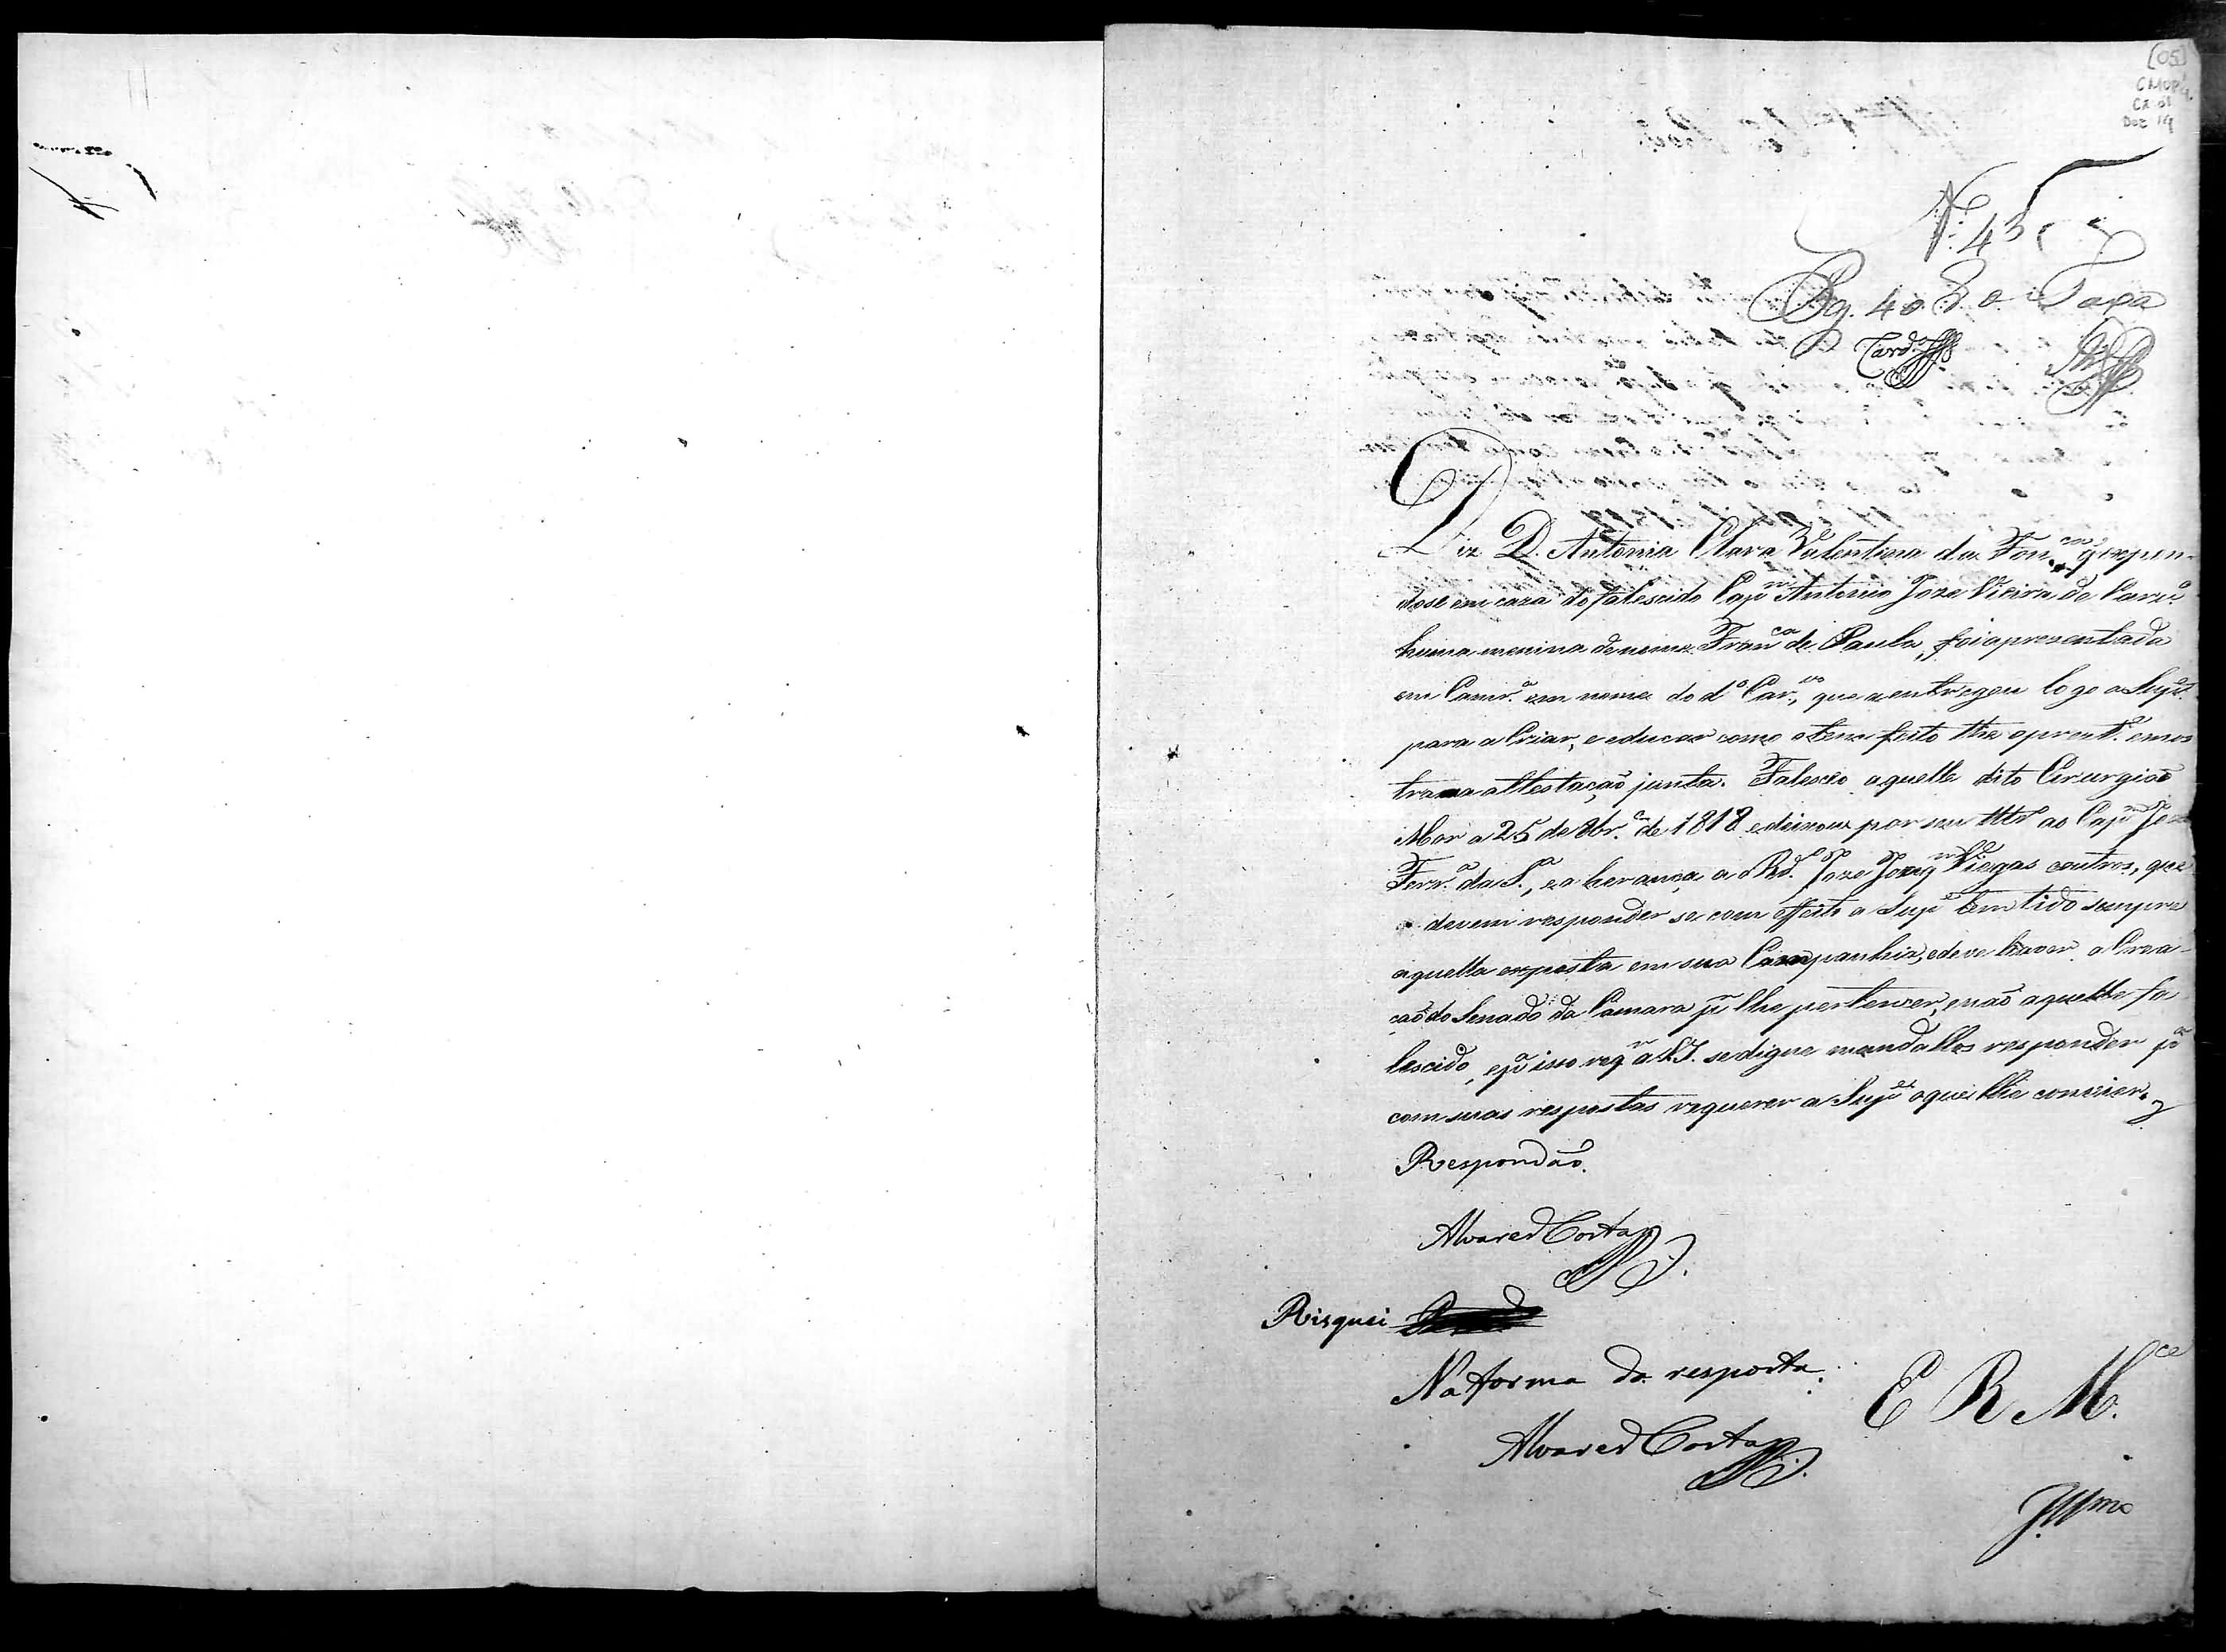 [05]
CMOP
CX 01
Doc 14
N.º 43
Pg. 40 rs. de Taxa
Card.º
Diz D. Antonia Clara Valentina da Fon.ca, q̃ expon-
dose em caza do falescido Cap.m Antonio Joze Vieira de Carv.º
huma menina de nome Fran.ca de Paula, foi aprezentada
em Camr.ª em nome do d.º Car.vo, que a entregou logo a Sup.e
para a Criar, e educar como o tem feito the o prez.te e mos
tra na attestação junta. Falesceo aquelle dito Cirurgião
Mor a 25 de 8br.º de 1818 e deixou por seu ttr.º ao Cap.m Joze
Ferr.ª da S.ª, e a herança a o Rd.º Joze Joaq.m Viegas e outros, que
devem responder se com effeito a Sup.e tem tido sempre
aquella exposta em sua Companhia, e deve haver a Crea-
ção do Senado da Camara p.r lhe pertencer, e não aquelle fa
lescido, e p.r isso req.r a V.S. se digne mandallos responder p.ª
com suas respostas requerer a Sup.e o que lhe convier.
Respondão.
Alvares Costa
Risquei
Na forma da resposta.
E R M.ce
Alvares Costa
Illmo